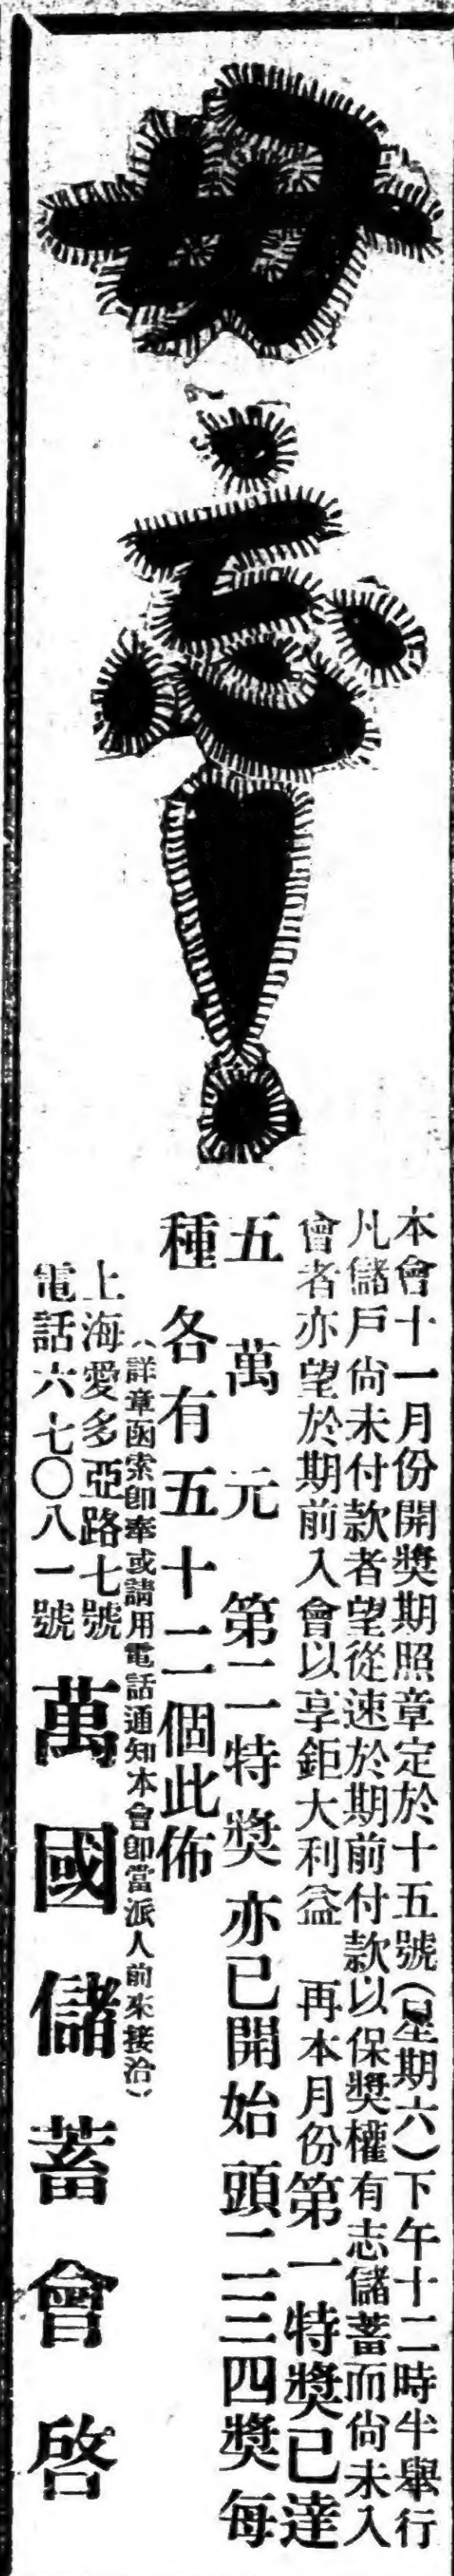 毋忘！
本會十一月份開獎期照章定於十五號（星期六）下午十二時半舉行
凡儲戶尙未付款者望從速於期前付款以保獎權有志儲蓄而尙未入
會者亦望於期前入會以享鉅大利益　再本月份第一特獎已達
五萬元　第二特獎亦已開始頭二三四獎每
種各有五十二個此佈
（詳章函索卽奉或請用電話通知本會卽當派人前來接洽）
上海愛多亞路七號
電話六七〇八一號
萬國儲蓄會啓